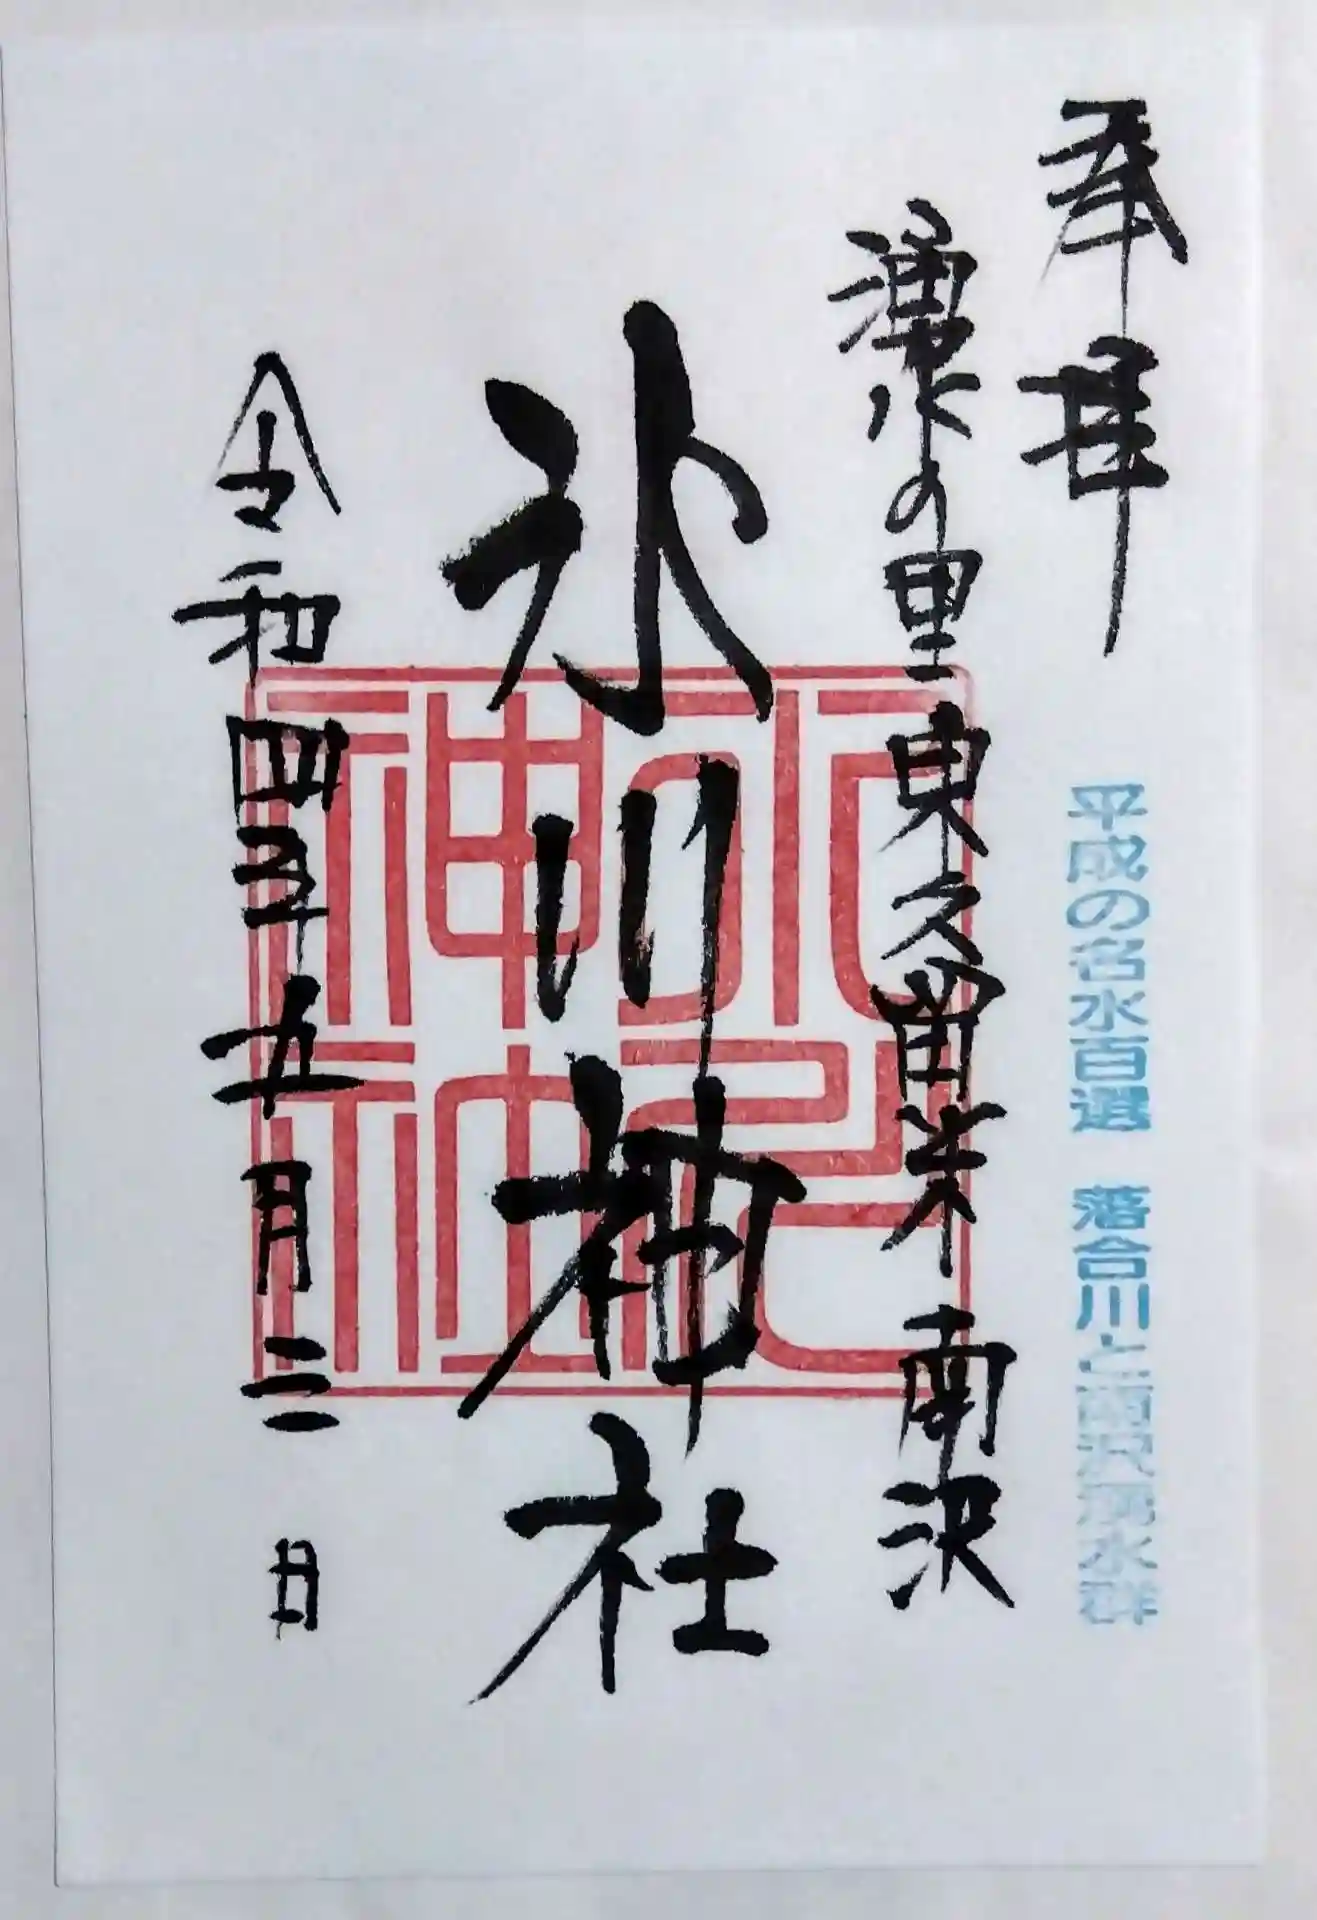 奉拝
平成の名水百選 落合川と南沢湧水群
湧水の里東久留米 南沢
氷川神社
令和四年五月三日
氷川神社